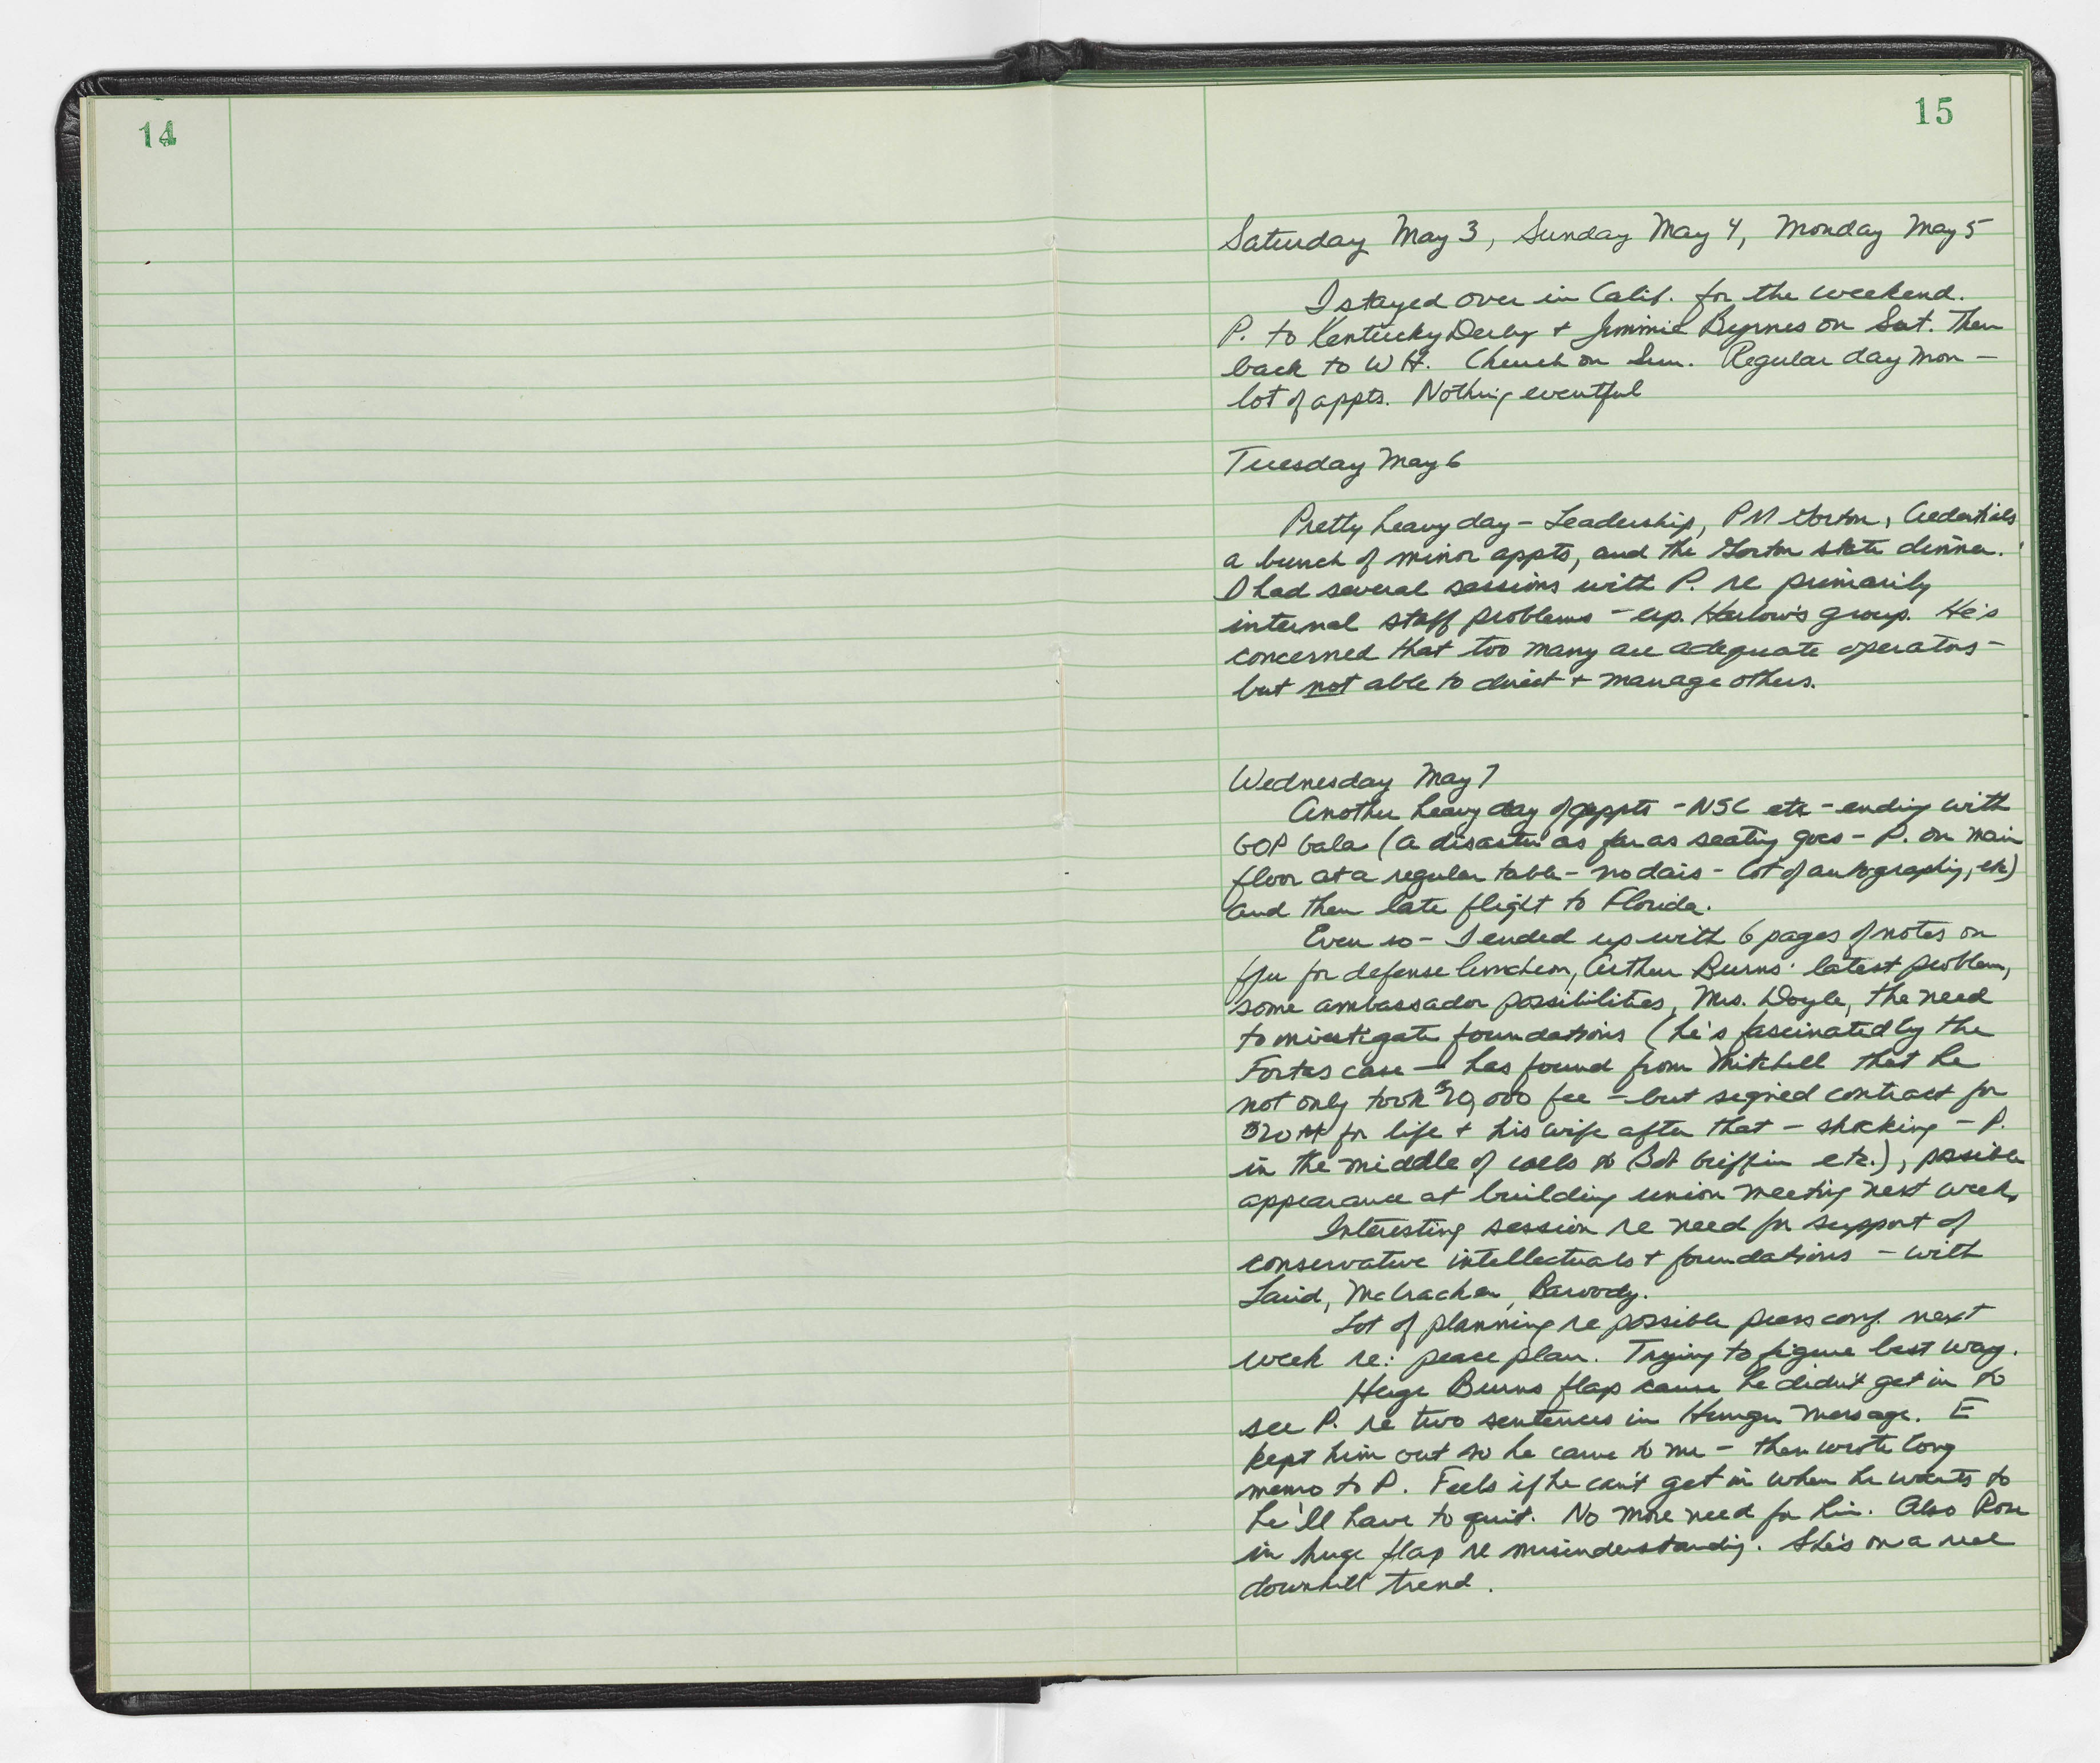 14
15
Saturday May 3, Sunday May 4, Monday May 5
I stayed over in Calif. for the weekend.
P. to Kentucky Derby + Jimmie Byrnes on Sat. Then
back to W H. Church on Sun. Regular day Mon –
lot of appts. Nothing eventful
Tuesday May 6
Pretty heavy day – Leadership, PM Gorton, Credentials
a bunch of minor appts, and the Gorton state dinner.
I had several sessions with P. re primarily
internal staff problems – esp. Harlow's group. He's
concerned that too many are adequate operators –
but not able to direct + manage others.
Wednesday May 7
Another heavy day of appts – NSC etc – ending with
GOP Gala (a disaster as far as seating goes – P. on main
floor at a regular table – no dais – lot of autographing, etc)
and then late flight to Florida.
Even so – I ended up with 6 pages of notes on
for defense luncheon, Arthur Burns' latest problem,
some ambassador possibilities, Mrs. Doyle, the need
to investigate foundations (he's fascinated by the
Fortas case – has found from Mitchell that he
not only took $20,000 fee – but signed contract for
$20 M for life + his wife after that – shocking – P.
in the middle of calls to Bob Griffin etc.), possible
appearance at building union meeting next week.
Interesting session re need for support of
conservative intellectuals + foundations – with
Laird, McCracken, Baroody.
Lot of planning re possible press conf. next
week re: peace plan. Trying to figure best way.
Huge Burns flap cause he didn't get in to
see P. re two sentences in Hunger Message. E
kept him out so he came to me – then wrote long
memo to P. Feels if he can't get in when he wants to
he'll have to quit. No more need for him. Also Rose
in huge flap re misunderstanding. She's on a real
downhill trend.